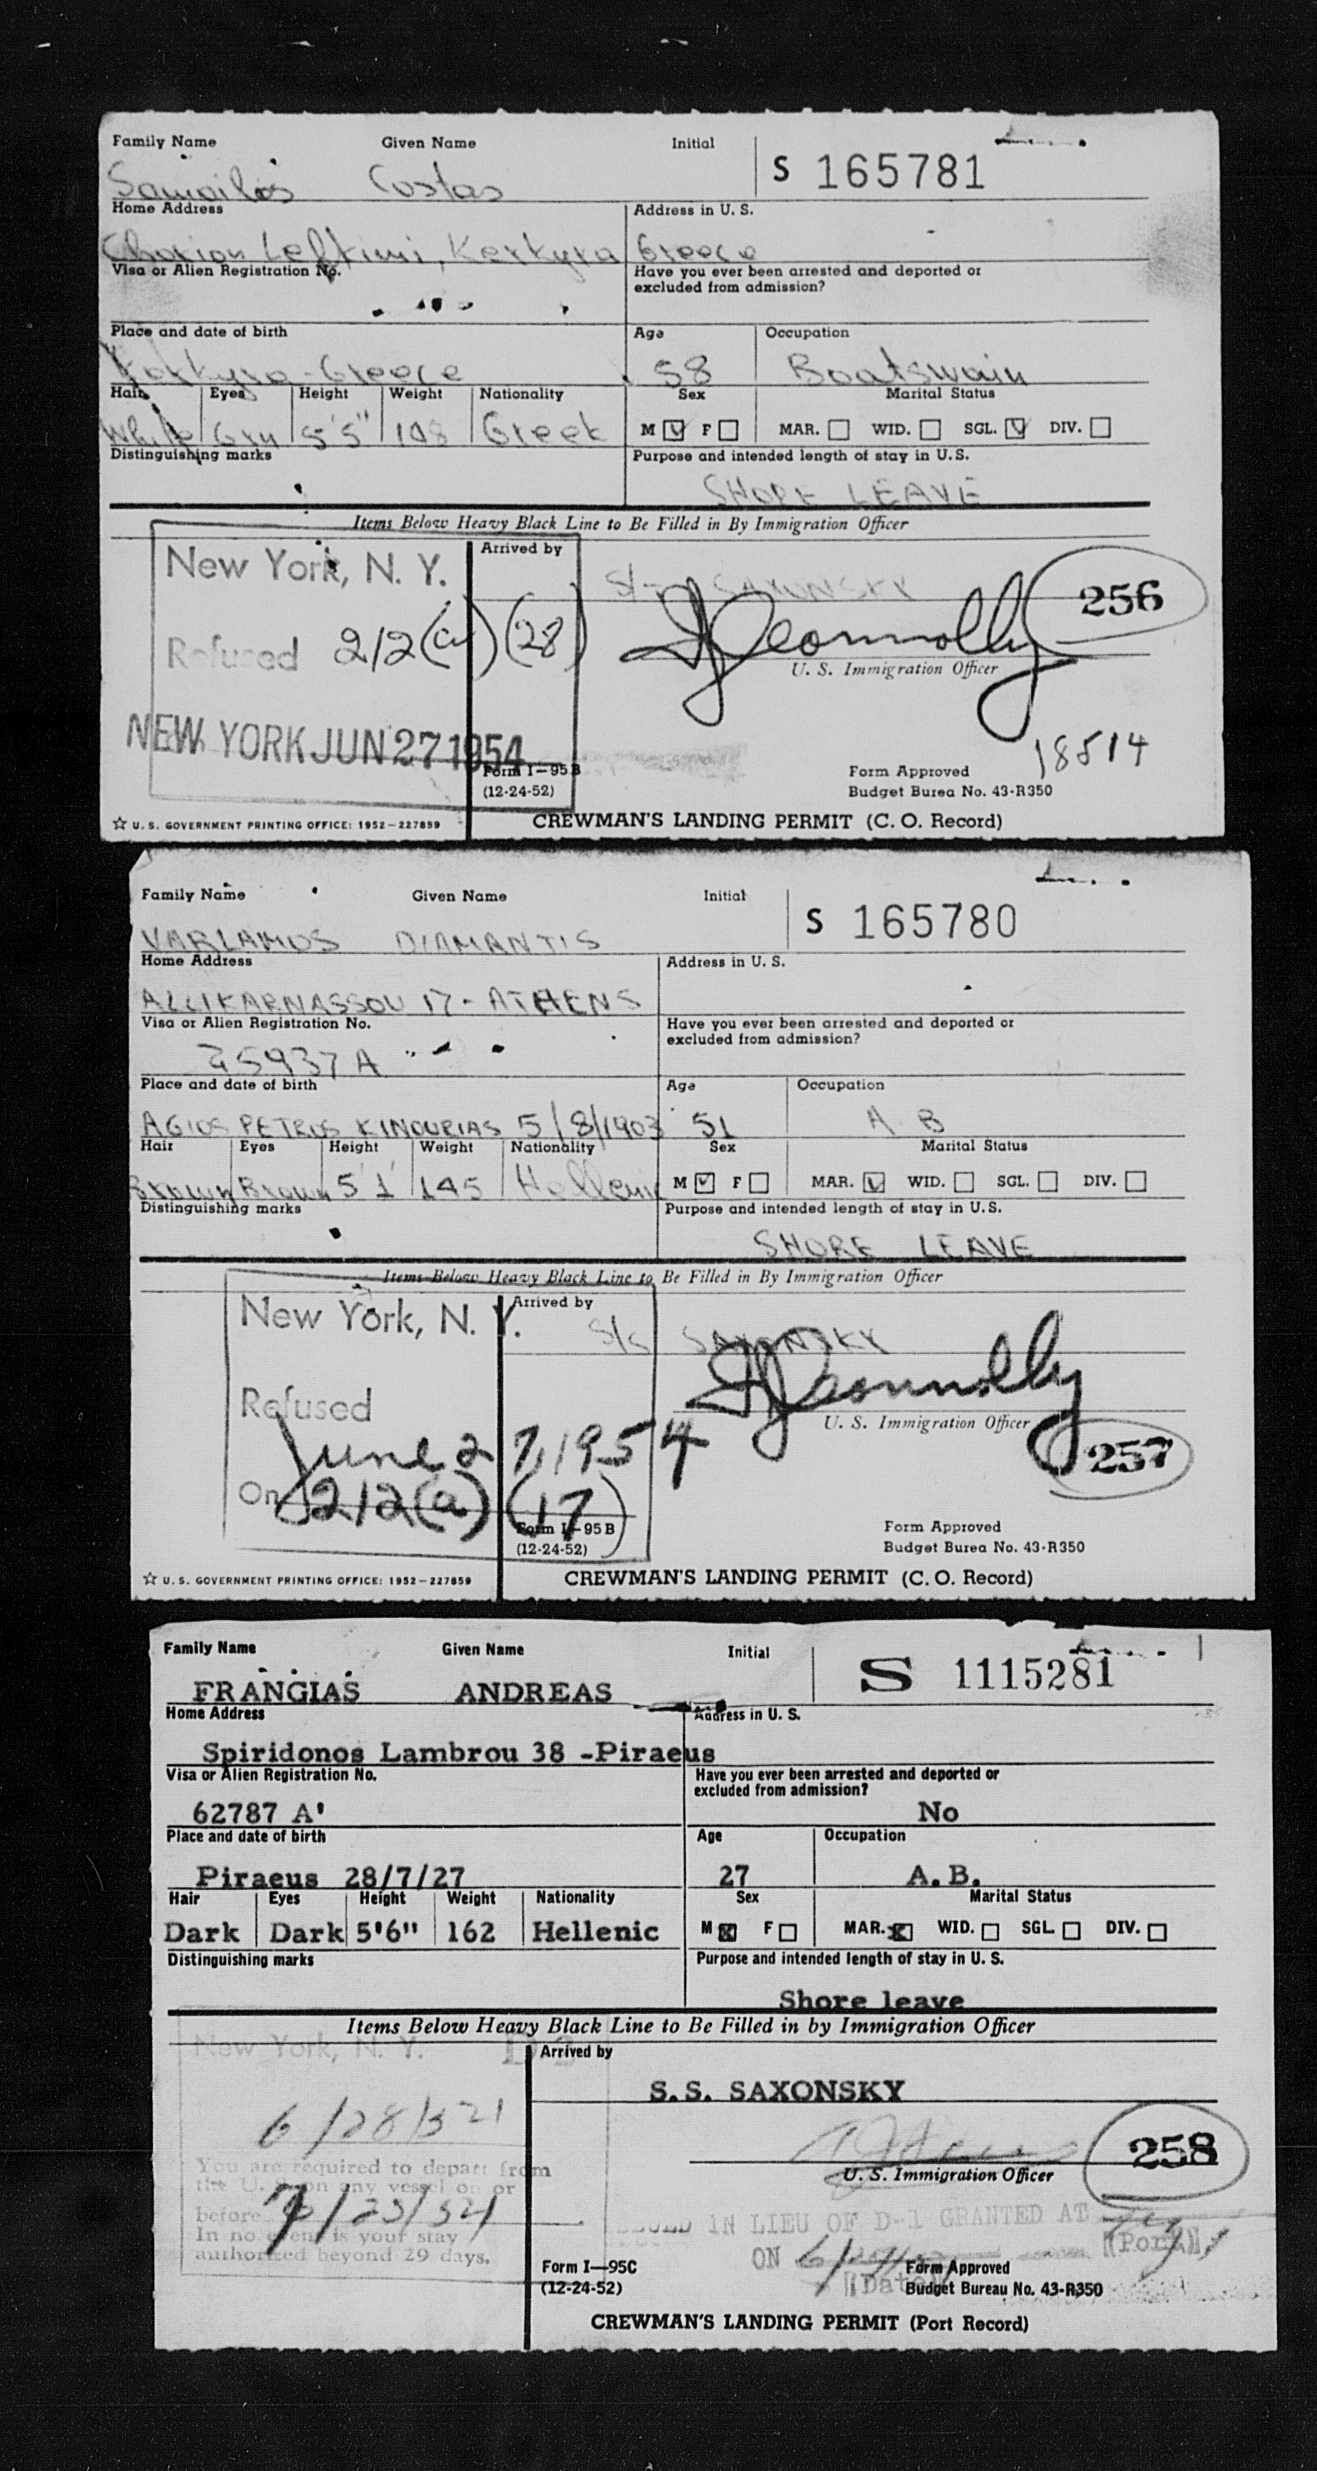 Family Name Given Name Initial S 165781
Samoilis Costas
Home Address Address in U. S.
Chorion Lefkimi, Kerkyra Greece
Visa or Alien Registration No. Have you ever been arrested and deported or
excluded from admission?
Place and date of birth Age Occupation
Kerkyra - Greece 58 Boatswain
Hair Eyes Height Weight Nationality Sex Marital Status
White Gry 5'5" 198 Greek M F MAR. WID. SGL. DIV.
Distinguishing marks Purpose and intended length of stay in U.S.
SHORE LEAVE
Items Below Heavy Black Line to Be Filled in By Immigration Officer
New York, N. Y. Arrived by
S/S SAXONSKY 256
Refused 212(a)(28)
U. S. Immigration Officer
NEW YORK JUN 27 1954 18514
Form I-95B Form Approved
(12-24-52) Budget Burea No. 43-R350
☆ U. S. GOVERNMENT PRINTING OFFICE: 1952-227859 CREWMAN'S LANDING PERMIT (C. O. Record)
Family Name Given Name Initial S 165780
VARLAMOS DIAMANTIS
Home Address Address in U. S.
ALLIKARNASSOU 17 - ATHENS
Visa or Alien Registration No. Have you ever been arrested and deported or
excluded from admission?
35937 A
Place and date of birth Age Occupation
AGIOS PETROS KINOURIAS 5/8/1903 51 A B
Hair Eyes Height Weight Nationality Sex Marital Status
Brown Brown 5'1' 145 Hellenic M F MAR. WID. SGL. DIV.
Distinguishing marks Purpose and intended length of stay in U.S.
SHORE LEAVE
Items Below Heavy Black Line to Be Filled in By Immigration Officer
New York, N. Y. Arrived by
S/S SAXONSKY
Refused
U. S. Immigration Officer
June 27, 1954 257
On 212(a)(17)
Form I-95B Form Approved
(12-24-52) Budget Burea No. 43-R350
☆ U. S. GOVERNMENT PRINTING OFFICE: 1952-227859 CREWMAN'S LANDING PERMIT (C. O. Record)
Family Name Given Name Initial S 1115281
FRANGIAS ANDREAS
Home Address Address in U. S.
Spiridonos Lambrou 38 -Piraeus
Visa or Alien Registration No. Have you ever been arrested and deported or
excluded from admission?
62787 A' No
Place and date of birth Age Occupation
Piraeus 28/7/27 27 A.B.
Hair Eyes Height Weight Nationality Sex Marital Status
Dark Dark 5'6" 162 Hellenic M F MAR. WID. SGL. DIV.
Distinguishing marks Purpose and intended length of stay in U. S.
Shore leave
Items Below Heavy Black Line to Be Filled in by Immigration Officer
New York, N. Y. Arrived by
S.S. SAXONSKY
6/28/54 258
You are required to depart from U. S. Immigration Officer
the U. S. on any vessel on or
before 7/23/54 IN LIEU OF D-1 GRANTED AT
In no event is your stay (Port)
authorized beyond 29 days. ON
(Date)
Form I—95C Form Approved
(12-24-52) Budget Bureau No. 43-R350
CREWMAN'S LANDING PERMIT (Port Record)